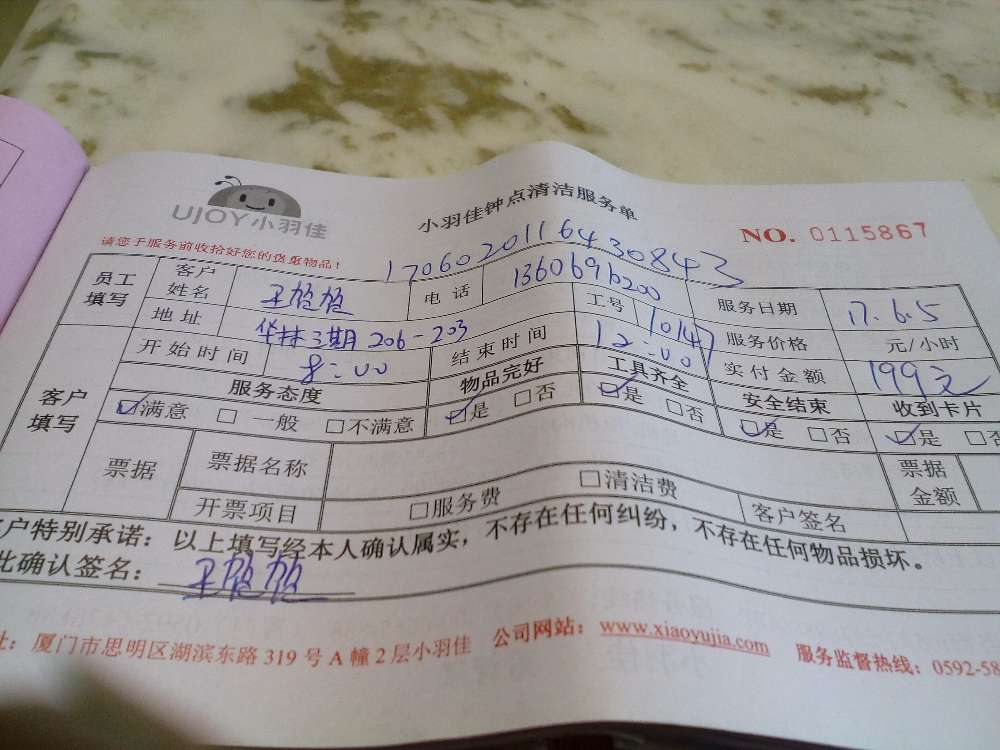 UJOY小羽佳
小羽佳钟点清洁服务单
NO. 0115867
请您于服务前收拾好您的贵重物品！
1706020116430843
员工填写 客户姓名 王 电话 13606916200 服务日期 17.6.5
地址 华林三期206-203 工号 10147 服务价格 元/小时
客户填写 开始时间 8:00 结束时间 12:00 实付金额 199元
服务态度 物品完好 工具齐全 安全结束 收到卡片
☑满意 □一般 □不满意 ☑是 □否 ☑是 □否 ☑是 □否 ☑是 □否
票据 票据名称 票据金额
开票项目 □服务费 □清洁费 客户签名
客户特别承诺：以上填写经本人确认属实，不存在任何纠纷，不存在任何物品损坏。
此确认签名： 王
址：厦门市思明区湖滨东路319号A幢2层小羽佳 公司网站：www.xiaoyujia.com 服务监督热线：0592-58